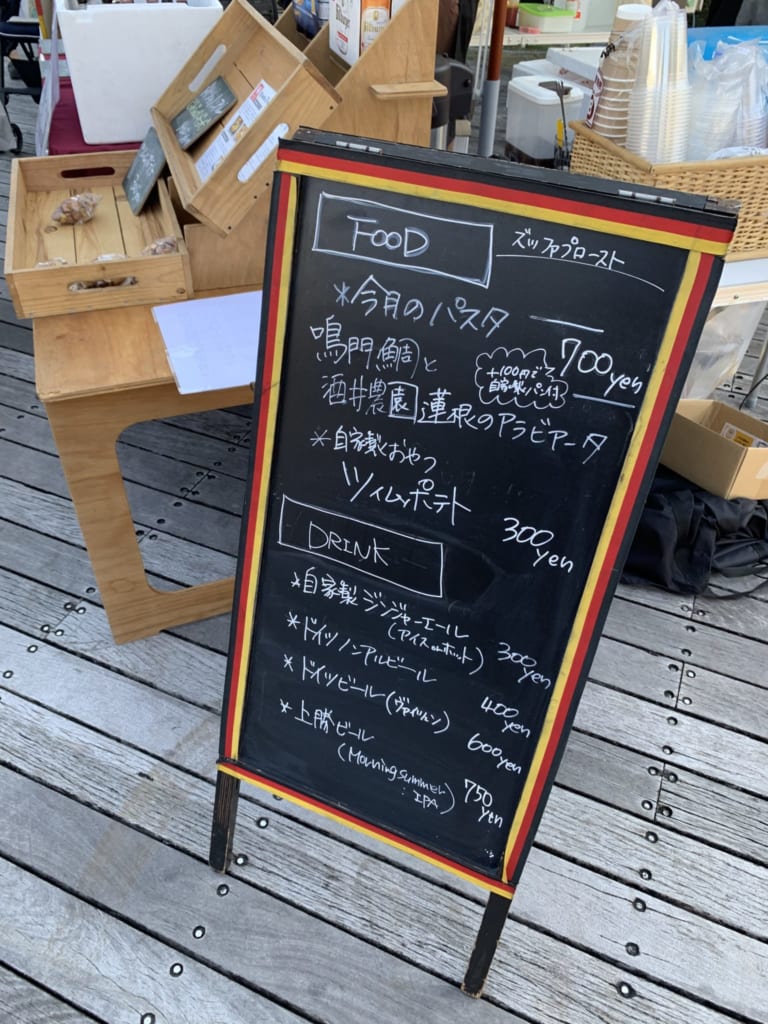 FOOD
ズッファプロースト
*今月のパスタ
鳴門鯛と
700yen
+100円で
自家製パン付
酒井農園蓮根のアラビアータ
*自家製おやつ
ツイムッポテト
300yen
DRINK
*自家製ジンジャーエール
(アイスorホット)
300yen
*ドイツノンアルビール
400yen
*ドイツビール(ヴァイツェン)
600yen
*上勝ビール
(Morning summer
: IPA)
750yen